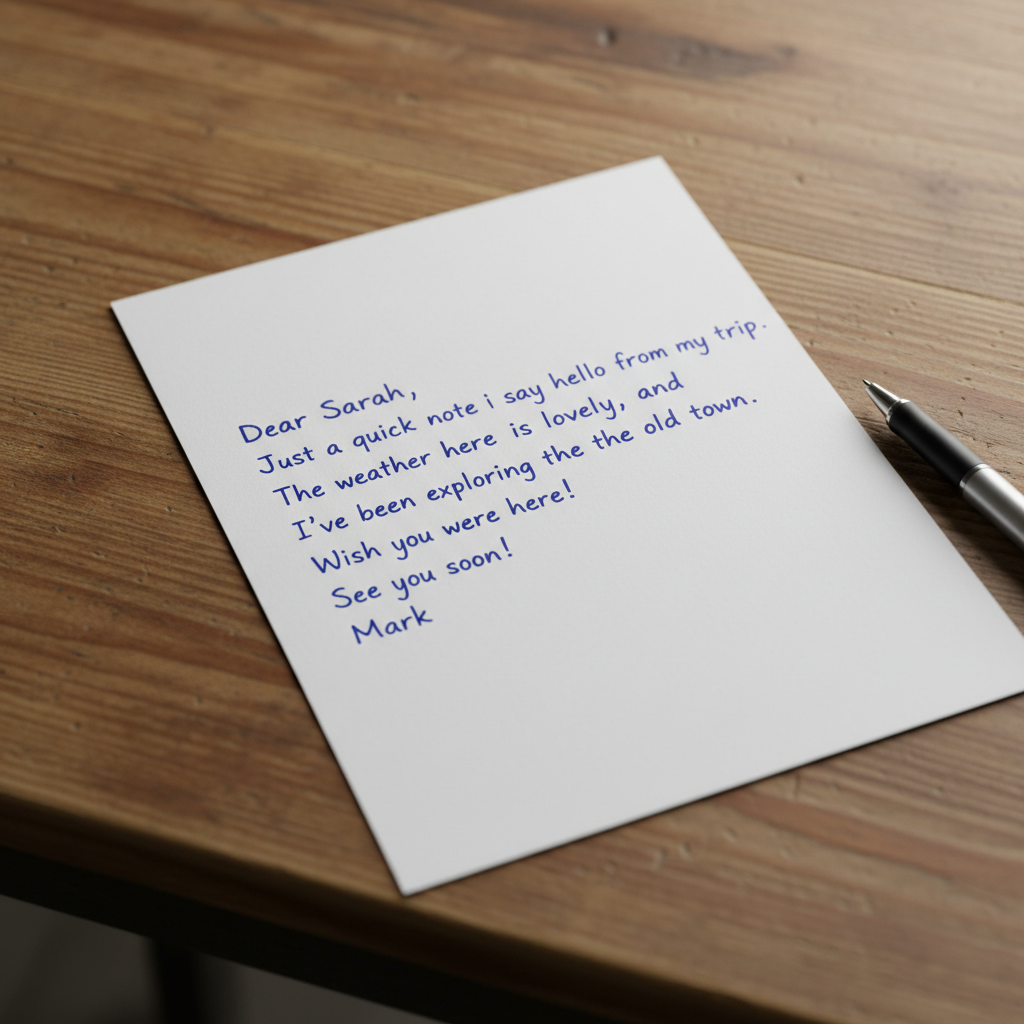 Dear Sarah,
Just a quick note i say hello from my trip.
The weather here is lovely, and
I've been exploring the the old town.
Wish you were here!
See you soon!
Mark